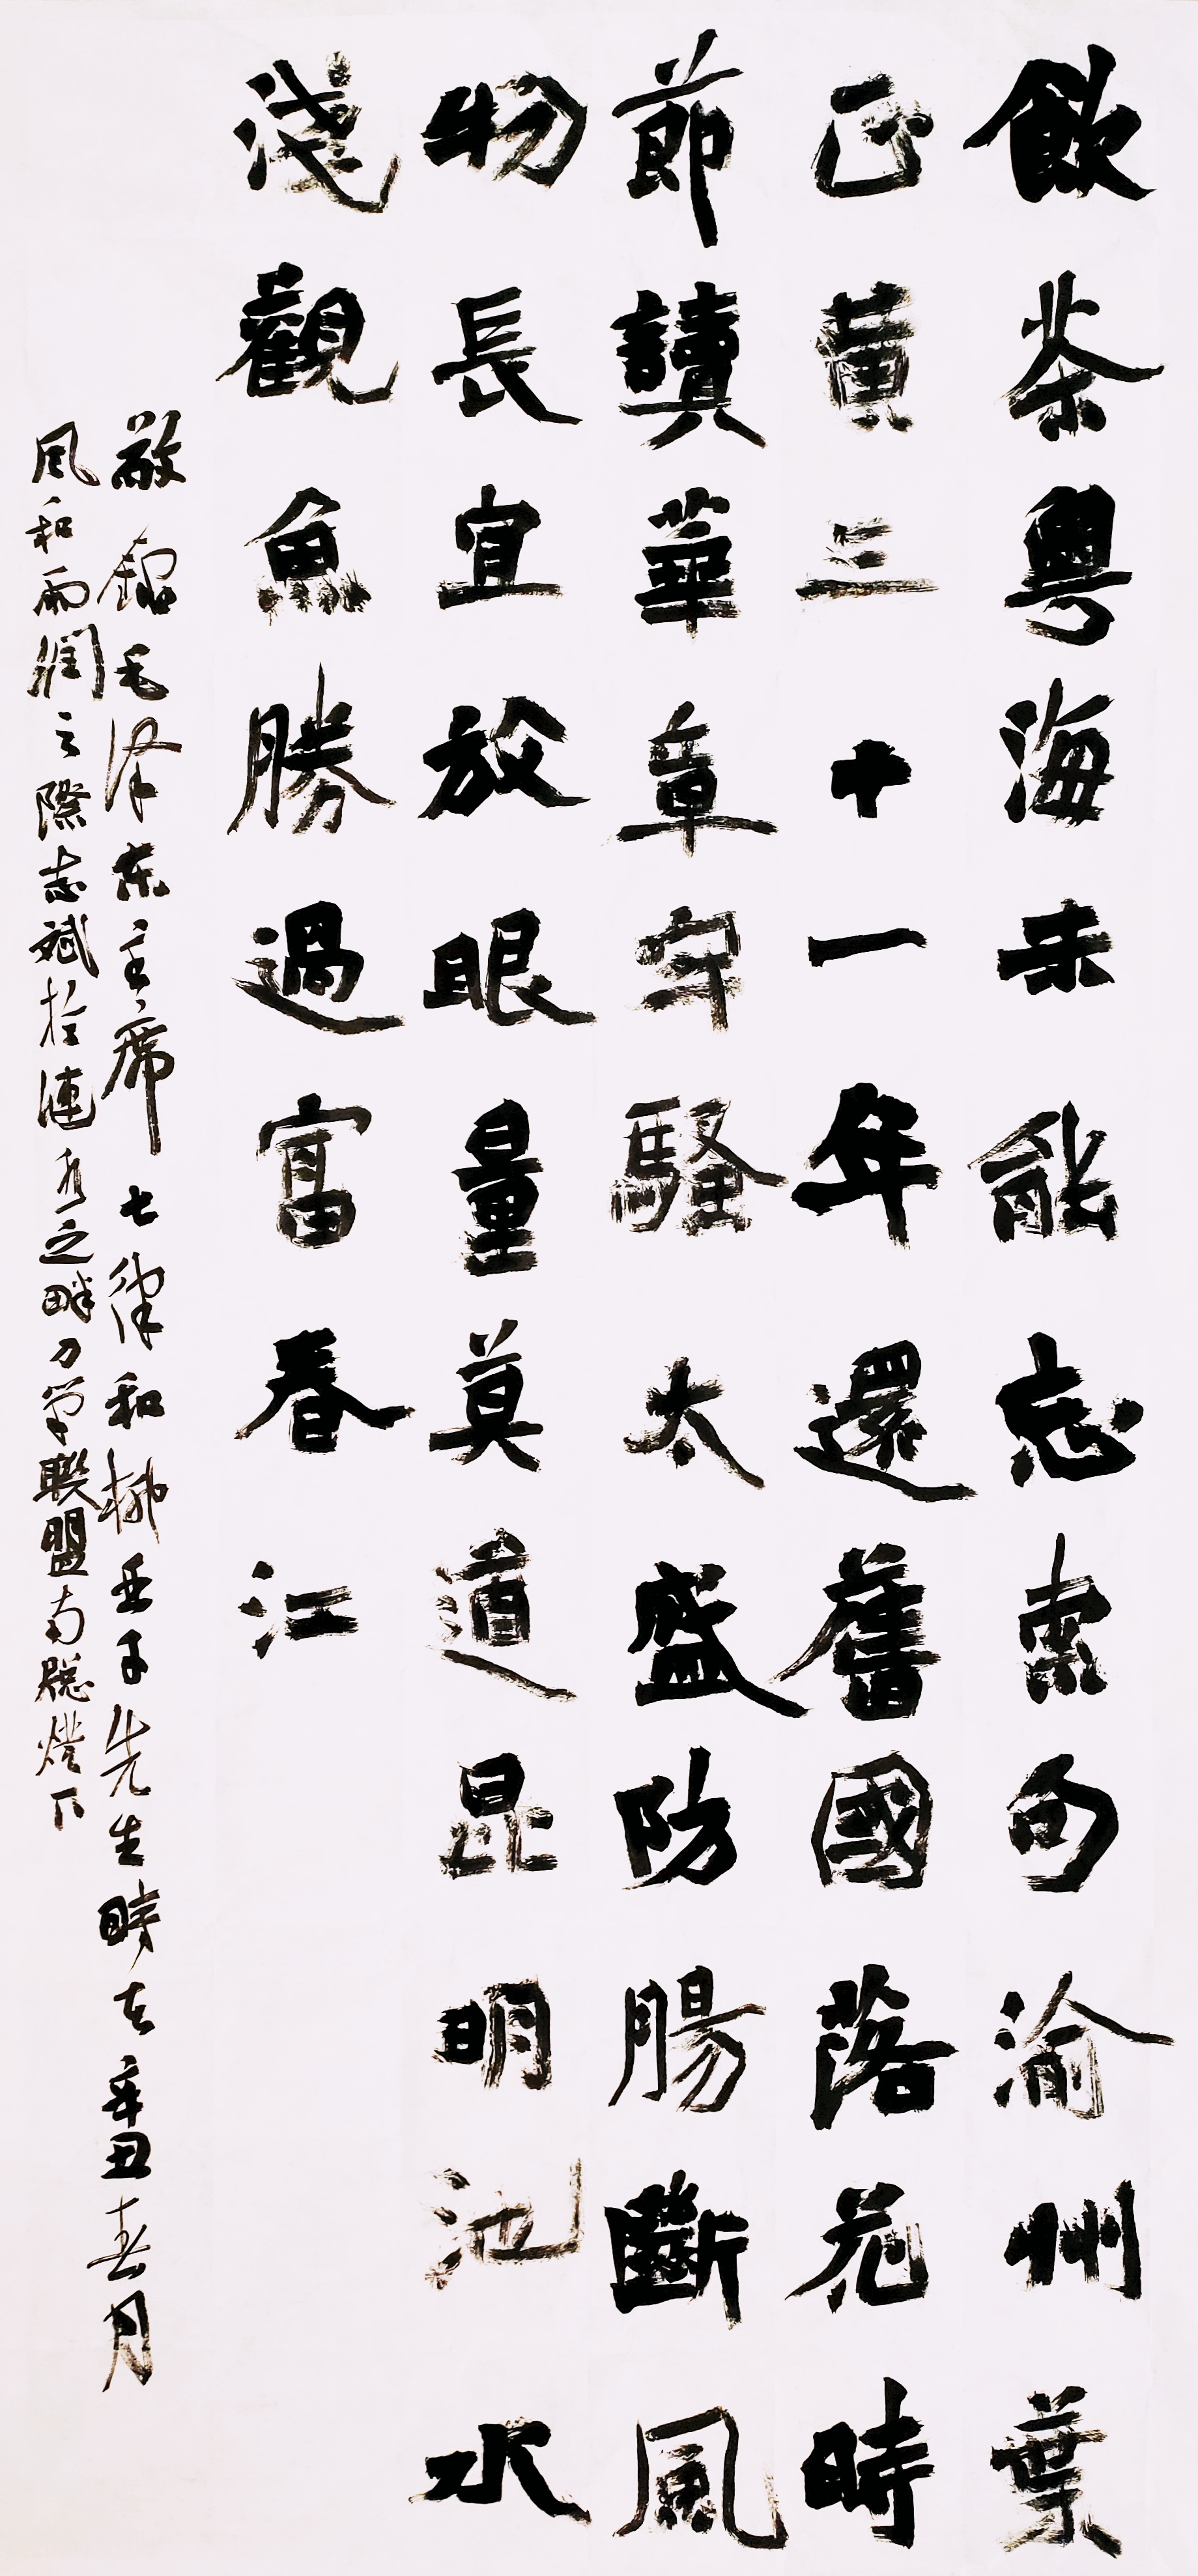 飲茶粵海未能忘索句渝州葉
正黃三十一年還舊國落花時
節讀華章牢騷太盛防腸斷風
物長宜放眼量莫道昆明池水
淺觀魚勝過富春江
敬錄毛泽东主席七律和柳亚子先生時在辛丑春月
風和雨潤之際志斌於漣水之畔刀筆聯盟南牕燈下